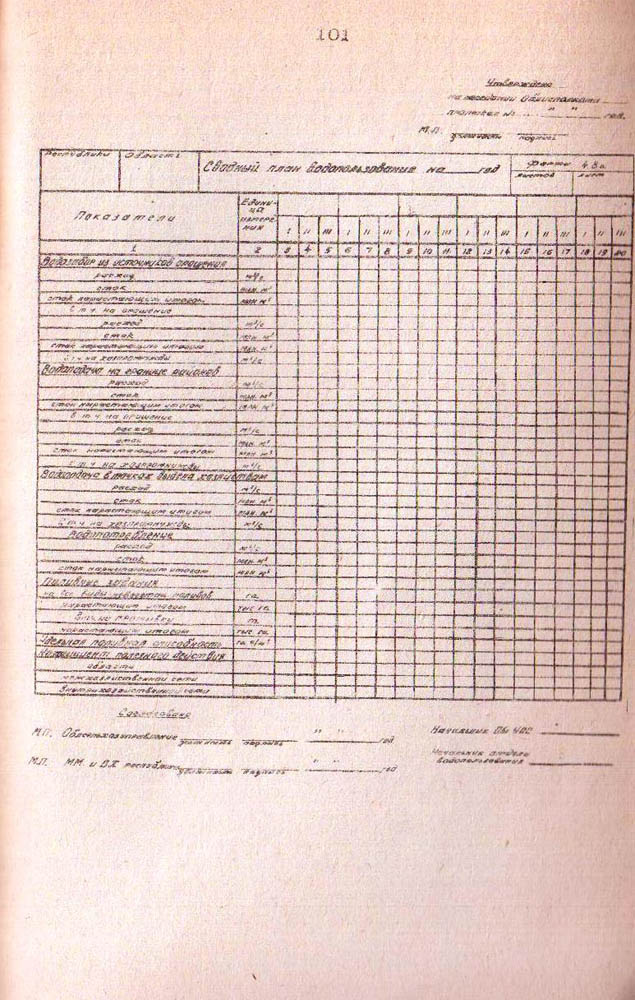 101
Утверждено
на заседании Облисполкома
протокол № " " год.
М.П. должность подпись
Республика Область Сводный план водопользования на год Форма 4.8а
листов лист
Показатели Единица измерения I II III I II III I II III I II III I II III I II III
1 2 3 4 5 6 7 8 9 10 11 12 13 14 15 16 17 18 19 20
Водозабор из источников орошения
расход м³/с
сток млн. м³
сток нарастающим итогом млн м³
в т.ч. на орошение
расход м³/с
сток млн. м³
сток нарастающим итогом млн. м³
в т.ч. на хозпромнужды м³/с
Водоподача на границе районов
расход м³/с
сток млн. м³
сток нарастающим итогом млн. м³
в т.ч. на орошение
расход м³/с
сток млн. м³
сток нарастающим итогом млн. м³
в т.ч. на хозпромнужды м³/с
Водоподача в точках выдела хозяйствам
расход м³/с
сток млн. м³
сток нарастающим итогом млн. м³
в т.ч. на хозпромнужды м³/с
Водопотребление
расход м³/с
сток млн. м³
сток нарастающим итогом млн м³
Поливные
на все виды поливов га.
нарастающим итогом тыс. га.
га.
нарастающим итогом тыс. га.
Удельная поливная способность
Коэффициент полезного действия
области
межхозяйственной сети
внутрихозяйственной сети
Согласовано
М.П. Облсельхозуправление должность подпись " " год
Начальник
М.П. ММ и ВХ республики должность подпись " " год
Начальник отдела
водопользования